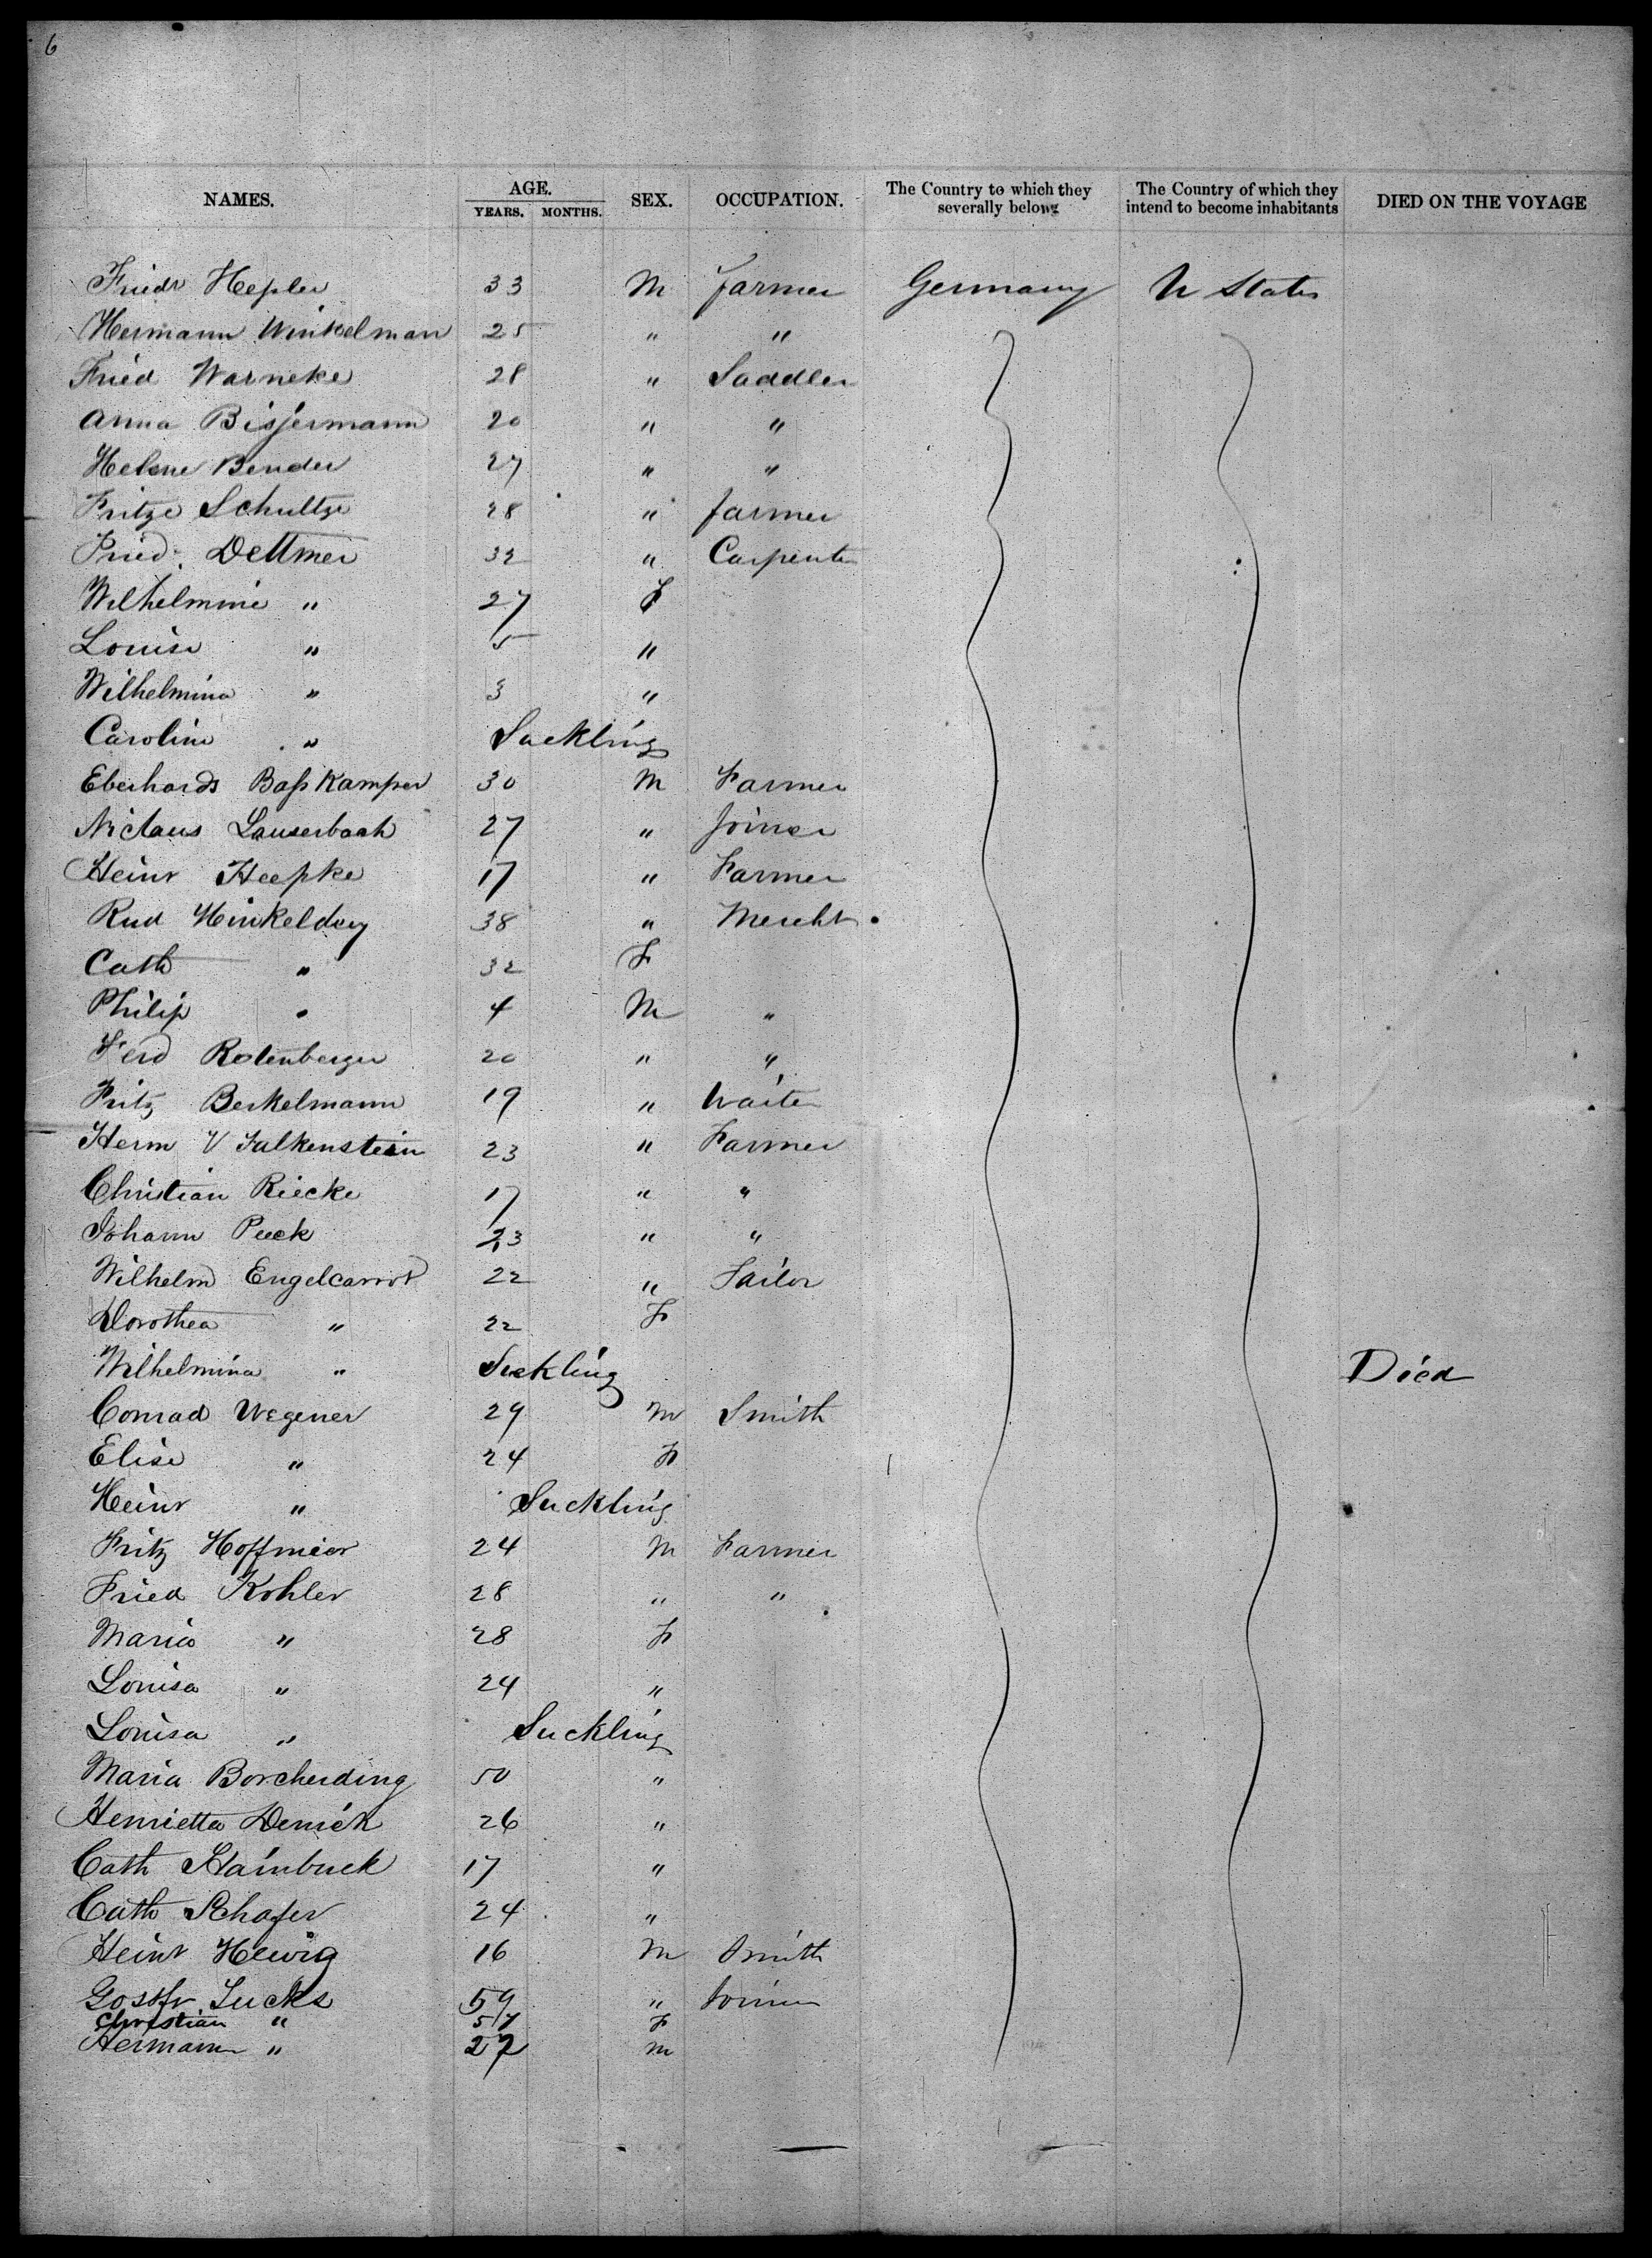 6
NAMES. AGE. YEARS. MONTHS. SEX. OCCUPATION. The Country to which they severally belong The Country of which they intend to become inhabitants DIED ON THE VOYAGE
Friedr Hepler 33 M farmer Germany U States
Hermann Winkelman 25 " "
Fried Warneke 28 " Saddler
Anna Bissermann 20 " "
Helene Bender 27 " "
Fritze Schultze 28 " farmer
Fried. Dettmer 32 " Carpenter
Wilhelmine " 27 F
Louise " 5 "
Wilhelmina " 3 "
Caroline " Suckling
Eberhards Baßkamper 30 M Farmer
Niclaus Lauserbach 27 " Joiner
Heinr Heepke 17 " Farmer
Rud Hinkeldey 38 " Mercht
Cath " 32 F
Philip " 4 M "
Ferd Rotenberger 20 " "
Fritz Berkelmann 19 " Waiter
Herm V Falkenstein 23 " Farmer
Christian Riecke 17 " "
Johann Peek 23 " "
Wilhelm Engelcarrot 22 " Tailor
Dorothea " 22 F
Wilhelmina " Suckling Died
Conrad Wegener 29 M Smith
Elise " 24 F
Heinr " Suckling
Fritz Hoffmeier 24 M Farmer
Fried Kohler 28 " "
Maria " 28 F
Louisa " 24 "
Louisa " Suckling
Maria Borcherding 50 "
Henrietta 26 "
Cath Hainbuck 17 "
Cath Schafer 24 "
Heinr Hewig 16 M Smith
Lucks 59 " Joiner
Christian " 57 F
Hermann " 27 M